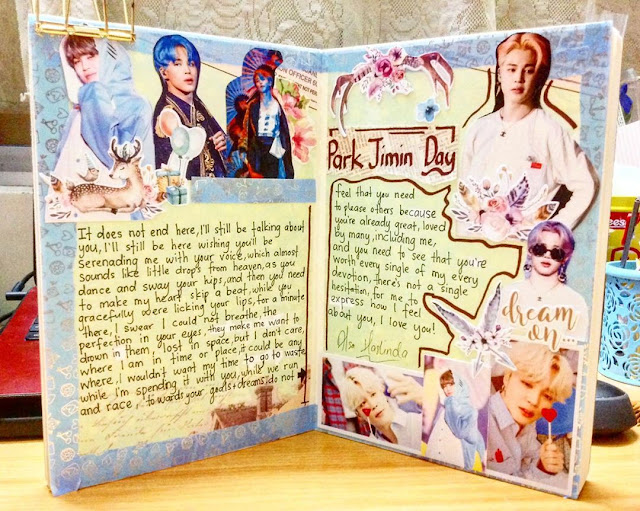 ON OFFICER
It does not end here, I'll still be talking about
you, I'll still be here wishing you'll be
serenading me with your voice, which almost
sounds like little drops from heaven, as you
dance and sway your hips, and then you need
to make my heart skip a beat, while you
gracefully were licking your lips, for a minute
there, I swear I could not breathe, the
perfection in your eyes, they make me want to
drown in them, lost in space, but I don't care,
where I am in time or place, it could be any
where, I wouldn't want my time to go to waste
while I'm spending it with you, while we run
and race, towards your goals + dreams, do not
Park Jimin Day
feel that you need
to please others because
you're already great, loved
by many, including me,
and you need to see that you're
worth every single of my every
devotion, there's not a single
hesitation, for me to
express how I feel
about you, I love you!
dream
on...